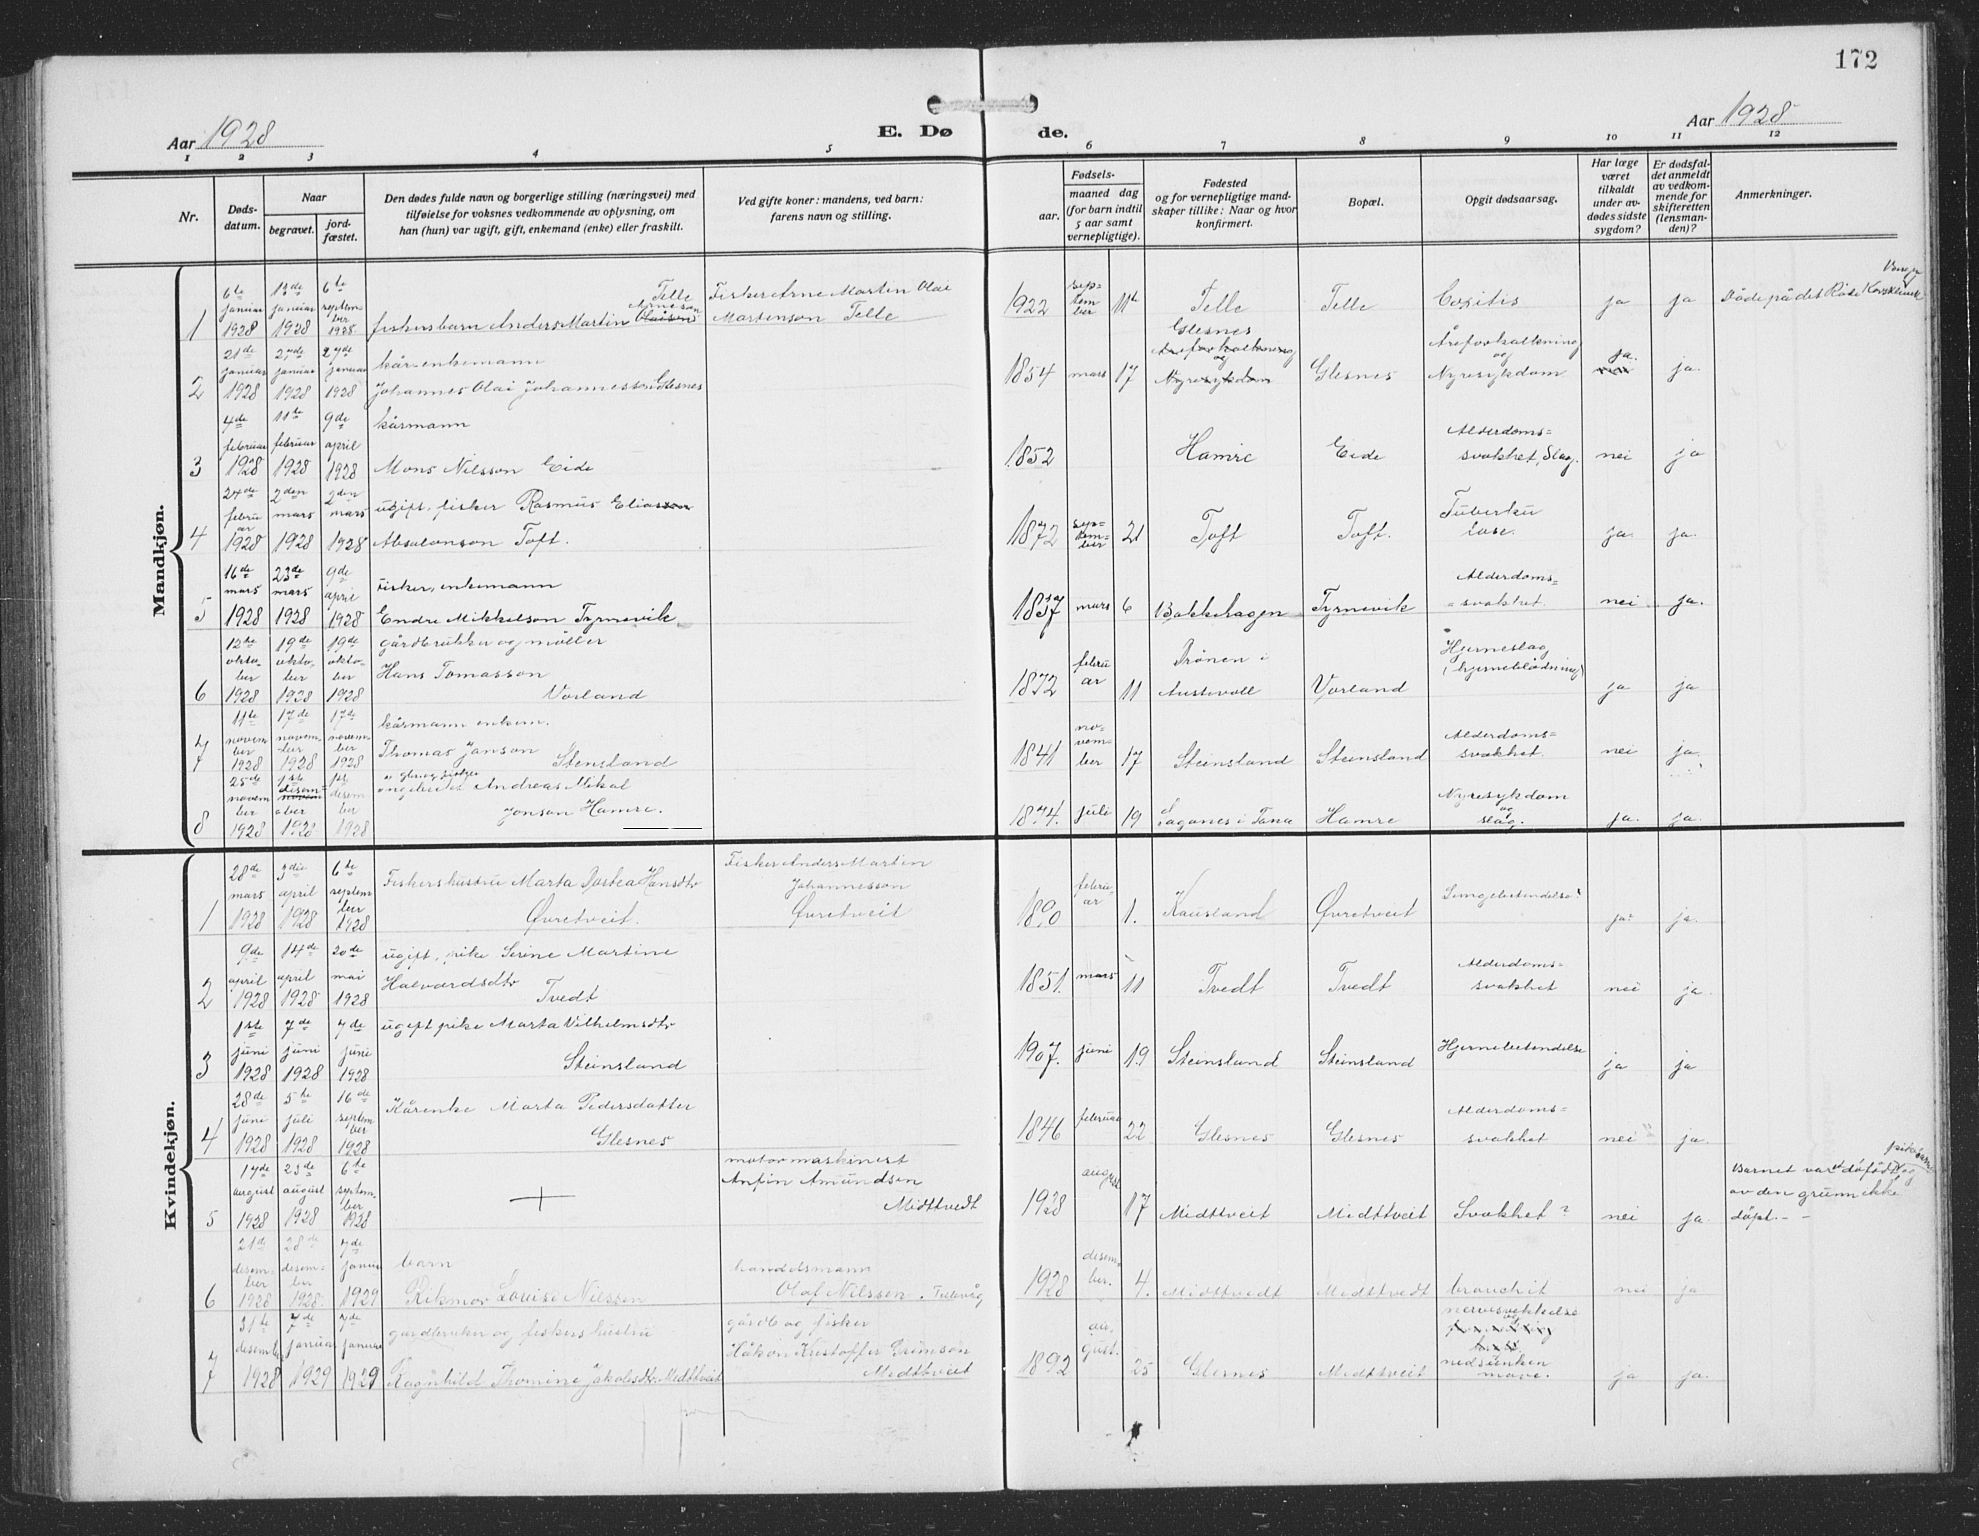 172
Aar 1928
E. Dø
de.
Aar 1928
1 2 3 4 5 6 7 8 9 10 11 12
Nr.
Døds-
datum.
Naar
begravet.
jord-
fæstet.
Den dødes fulde navn og borgerlige stilling (næringsvei) med
tilføielse for voksnes vedkommende av oplysning, om
han (hun) var ugift, gift, enkemand (enke) eller fraskilt.
Ved gifte koner: mandens, ved barn:
farens navn og stilling.
Fødsels-
aar.
maaned dag
(for barn indtil
5 aar samt
vernepligtige).
Fødested
og for vernepligtige mand-
skaper tillike: Naar og hvor
konfirmert.
Bopæl.
Opgit dødsaarsag.
Har læge
været
tilkaldt
under av-
dødes sidste
sygdom?
Er dødsfal-
det anmeldt
av vedkom-
mende for
skifteretten
(lensman-
den)?
Anmerkninger.
Mandkjøn.
1
6te januar 1928
13de januar 1928
6te september 1928
fiskersbarn Anders Martin Olaisen Arneson Telle
Fisker Arne Martin Olai
Martenson Telle
1922 september 11te
Telle
Telle
Coxitis
ja
ja
Døde på det Røde Kors klinik Bergen
2
21de januar 1928
27de januar 1928
27de januar 1928
kårenkemann
Johannes Olai Johannesson Glesnes
1854 mars 17
Glesnes
Åreforkalkning
og
Nyresykdom
Glesnes
Åreforkalkning
og
Nyresykdom
ja.
nei
ja.
3
4de februar 1928
11te februar 1928
9de april 1928
kårmann
Mons Nilsson Eide
1852
Hamre
Eide
Alderdoms=
svakhet, Slag.
nei
ja
4
24de februar 1928
2den mars 1928
2den mars 1928
ugift, fisker Rasmus Eliasson
Absalonson Toft.
1872 september 21
Toft
Toft.
Tuberku
lose.
ja.
ja.
5
16de mars 1928
23de mars 1928
9de april 1928
Fisker, enkemann
Endre Mikkelson Tyrnevik
1837 mars 6
Bakkehagen
Tyrnevik
Alderdoms=
=svakhet.
nei
ja.
6
12te oktober 1928
19de oktober 1928
19de oktober 1928
gårdbrukker og møller
Hans Tomasson
Vorland
1872 februar 11
Drønen i
Austevoll
Vorland
Hjerneslag
(hjerneblødning)
ja
ja
7
11te november 1928
17de november 1928
17de november 1928
kårmann enkem.
Thomas Janson
Stensland
1841 november 17
Steinsland
Steinsland
Alderdoms=
svakhet.
nei
ja.
8
25de november 1928
1ste desember 1928
1st desember 1928
Andreas Mikal
Jonson Hamre.
1874. juli 19
i Tana
Hamre
Nyresykdom
og
slag.
ja.
ja.
Kvindekjøn.
1
28de mars 1928
3die april 1928
6te september 1928
Fiskershustru Marta Dortea Hansdtr
Øvretveit.
Fisker Anders Martin
Johannesson
Øvretveit
1890 februar 1.
Kausland
Øvretveit
Lungebetendelse?
ja?
ja.
2
9de april 1928
14de april 1928
20de mai 1928
ugift, pike Serine Martine
Halvardsdtr
Tvedt
1851. mars 11
Tvedt
Tvedt
Alderdoms=
svakhet
nei
ja.
3
1ste juni 1928
7de juni 1928
7de juni 1928
ugift pike Marta Vilhelmsdtr
Steinsland
1907. juni 19
Steinsland
Steinsland
Hjernebetendelse
ja
ja
4
28de juni 1928
5te juli 1928
16de september 1928
Kårenke Marta Pedersdatter
Glesnes
1846 februar 22
Glesnes
Glesnes
Alderdoms=
svakhet
nei
ja.
5
17de august 1928
23de august 1928
6te september 1928
+
motormaskinest
Anfin Amundsen
Midttvedt
1928 august 17
Midttveit
Midttveit
Svakhet?
nei
ja.
Barnet var døfødt og
av den grunn ikke
døpt. – –
6
21de desember 1928
28de desember 1928.
7de januar 1929
barn
Rikmor Louise Nilssen
handelsmann
Olaf Nilssen.
1928 desember. 4.
Midttvedt
Midttvedt
bronchit
nei
ja
7
31te desember 1928
7de januar 1929
7de januar 1929
gårdbruker og fiskers hustru
Ragnhild Thomine Jakobsdtr. Midttveit
gårdb og fisker
Håkon Kristoffer Grimson
Midttveit
1892 august. 25
Glesnes
Midttveit
nervesvekkelse
og
nedsunken
mave.
ja
ja.